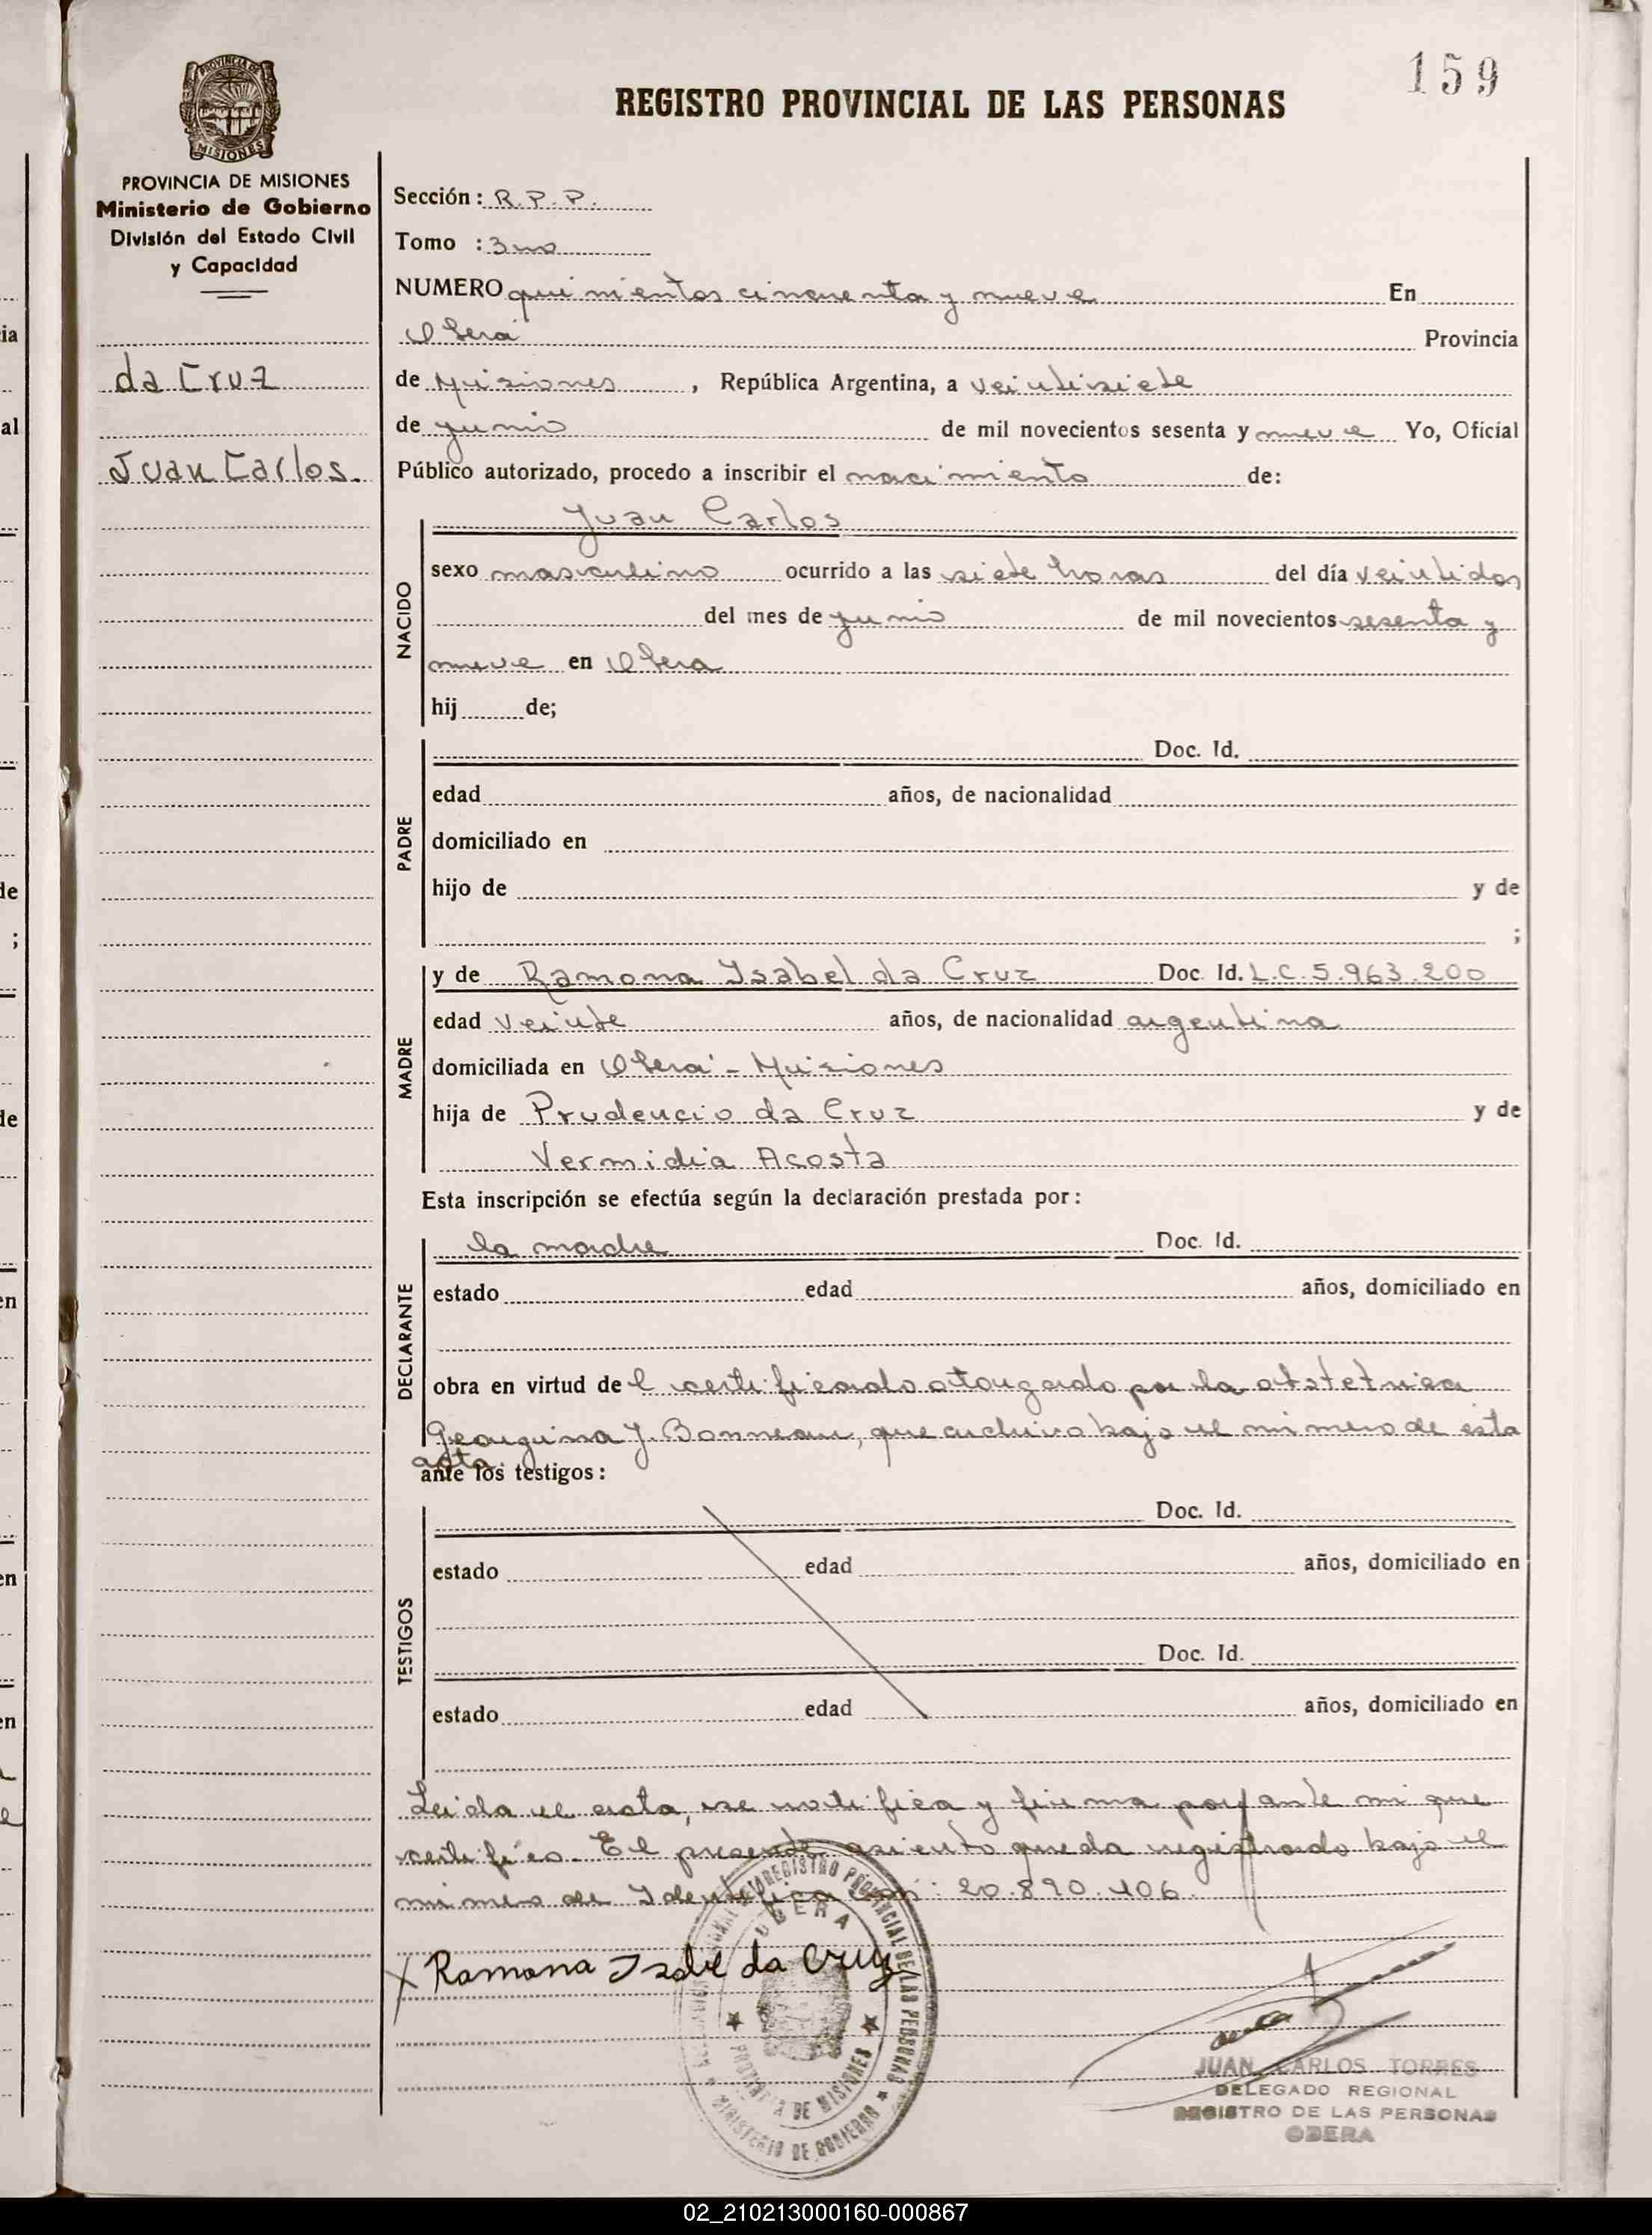 159
REGISTRO PROVINCIAL DE LAS PERSONAS
PROVINCIA DE
MISIONES
PROVINCIA DE MISIONES
Ministerio de Gobierno
División del Estado Civil
y Capacidad
da Cruz
Juan Carlos.
Sección: R.P.P.
Tomo : 3ro
NUMERO quinientos cincuenta y nueve En
Oberá Provincia
de Misiones, República Argentina, a veintisiete
de junio de mil novecientos sesenta y nueve Yo, Oficial
Público autorizado, procedo a inscribir el nacimiento de:
Juan Carlos
NACIDO
sexo masculino ocurrido a las siete horas del día veintidos
del mes de junio de mil novecientos sesenta y
nueve en Obera
hij de;
PADRE
Doc. Id.
edad años, de nacionalidad
domiciliado en
hijo de y de
;
MADRE
y de Ramona Ysabel da Cruz Doc. Id. L.C. 5.963.200
edad veinte años, de nacionalidad argentina
domiciliada en Oberá - Misiones
hija de Prudencio da Cruz y de
Vermidia Acosta
Esta inscripción se efectúa según la declaración prestada por:
DECLARANTE
la madre Doc. Id.
estado edad años, domiciliado en
obra en virtud del certificado otorgado por la obstetrica
Georgina J. Bonneau, que archivo bajo el numero de esta
acta.
ante los testigos:
TESTIGOS
Doc. Id.
estado edad años, domiciliado en
Doc. Id.
estado edad años, domiciliado en
Leida el acta, se notifica y firma por ante mi que
certifico. El presente asiento queda registrado bajo el
numero de Identificación: 20.890.406.
X Ramona Isabel da Cruz
REGISTRO PROVINCIAL DE LAS PERSONAS
OBERA
PROVINCIA DE MISIONES
MINISTERIO DE GOBIERNO
JUAN CARLOS TORRES
DELEGADO REGIONAL
REGISTRO DE LAS PERSONAS
OBERA
02_210213000160-000867